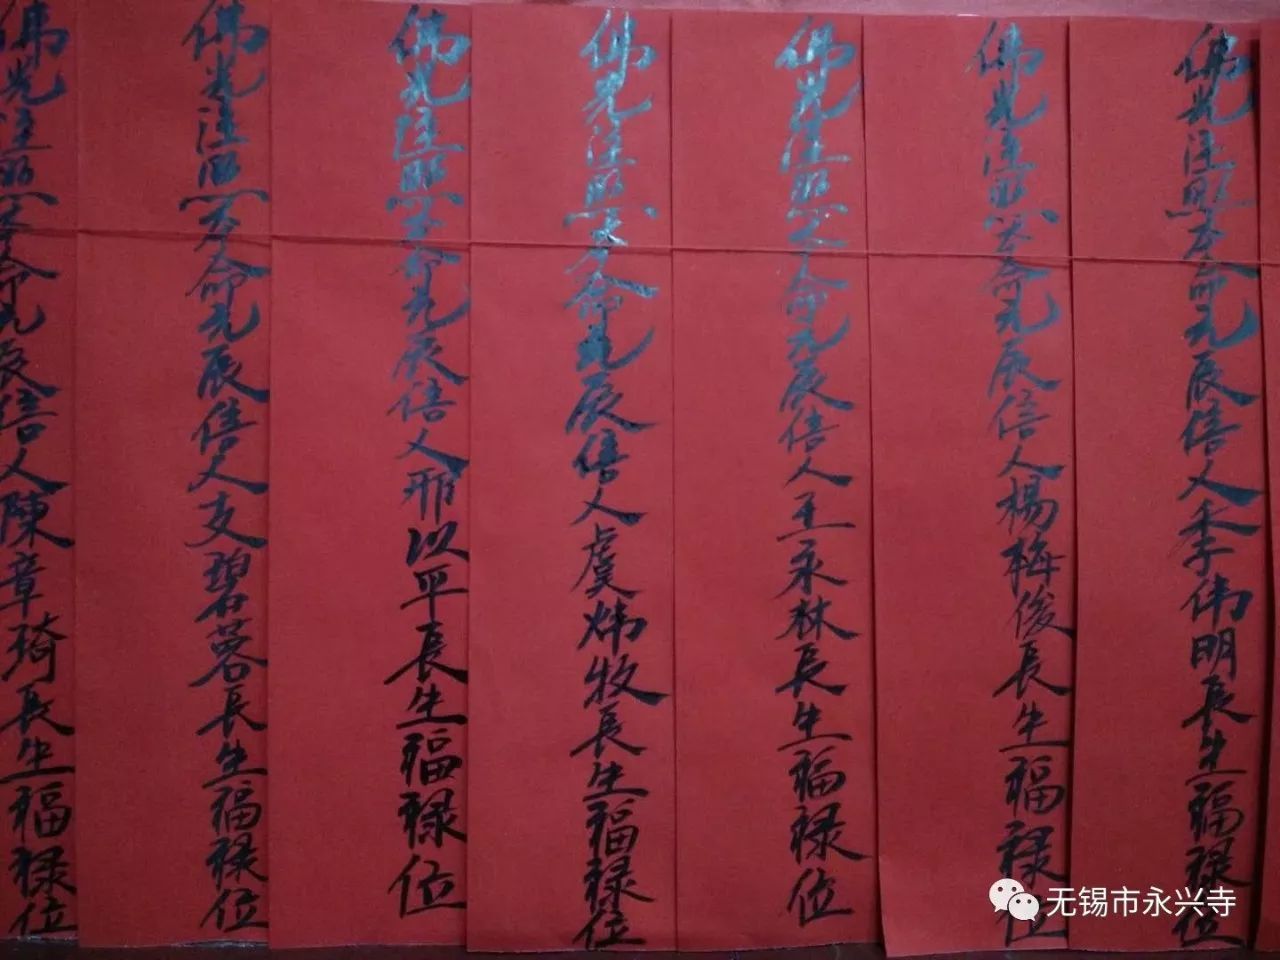 佛光注照本命元辰信人季伟明長生福禄位
佛光注照本命元辰信人楊梅俊長生福禄位
佛光注照本命元辰信人王永林長生福禄位
佛光注照本命元辰信人虞炜牧長生福禄位
佛光注照本命元辰信人邢以平長生福禄位
佛光注照本命元辰信人支碧蓉長生福禄位
佛光注照本命元辰信人陳章琦長生福禄位
无锡市永兴寺